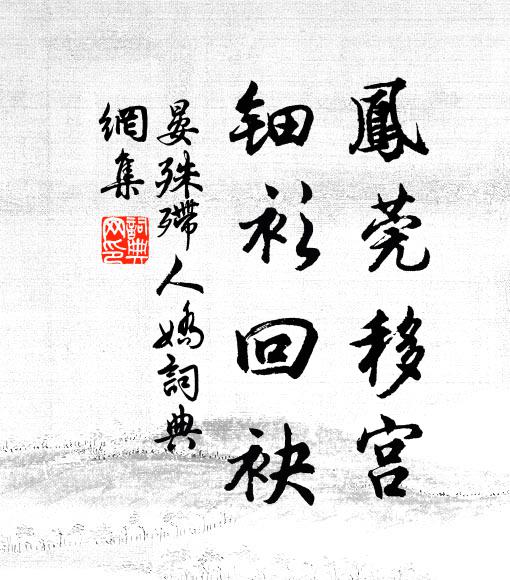 鳳莞移宮
鈿衫回袂
晏殊殢人嬌詞典
網集
詞典網印